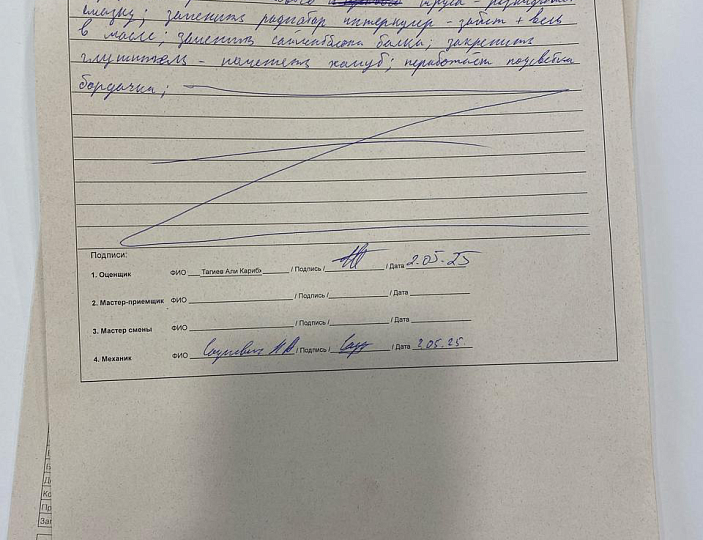 смазку; заменить радиатор интеркулер - зажат + весь
в масле; заменить сайлентблоки балки; закрепить
глушитель - поменять хомут; неработает подсветка
бордачка;
Подписи:
1. Оценщик ФИО Тагиев Али Карибэ / Подпись / / Дата 2.05.25
2. Мастер-приемщик ФИО / Подпись / / Дата
3. Мастер смены ФИО / Подпись / / Дата
4. Механик ФИО / Подпись / / Дата 2.05.25.
Ко
Пр